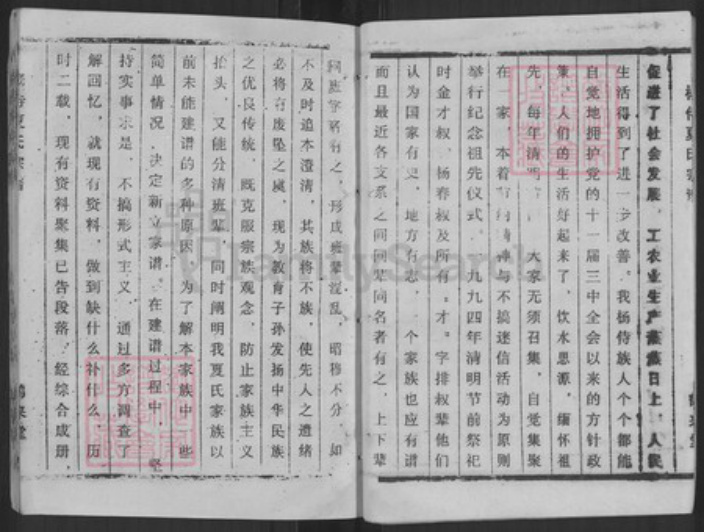 促进了社会发展，工农业生产蒸蒸日上，人民
生活得到了进一步改善。我杨侍族人个个都能
自觉地拥护党的十一届三中全会以来的方针政
策，人们的生活好起来了，饮水思源，缅怀祖
先，每年清明 大家无须召集，自觉集聚
在 家，本着 精神与不搞迷信活动为原则
举行纪念祖先仪式。 九九四年清明节前祭祀
时金才叔、杨春叔及所有“才”字排叔辈他们
认为国家有史，地方有志，一个家族也应有谱
而且最近各支系之间同辈同名者有之，上下辈
同班字名有之，形成班辈混乱，昭穆不分，如
不及时追本澄清，其族将不族，使先人之遗绪
必将有废坠之虞，现为教育子孙发扬中华民族
之优良传统，既克服宗族观念，防止家族主义
抬头，又能分清班辈，同时阐明我夏氏家族以
前未能建谱的多种原因，为了解本家族中一些
简单情况，决定新立家谱。在建谱过程中，坚
持实事求是，不搞形式主义，通过多方调查了
解回忆，就现有资料，做到缺什么补什么，历
时二载，现有资料聚集已告段落，经综合成册，
夏氏宗谱
FamilySearch